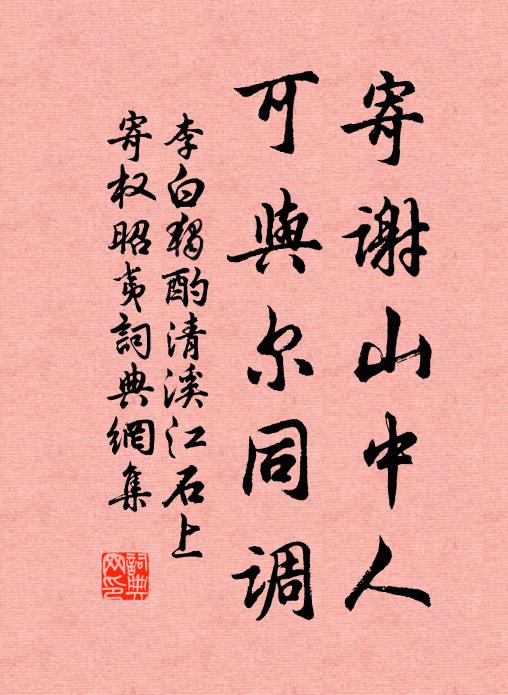 寄谢山中人
可與尔同调
李白獨酌清溪江石上
寄权昭夷詞典網集
詞典
网印